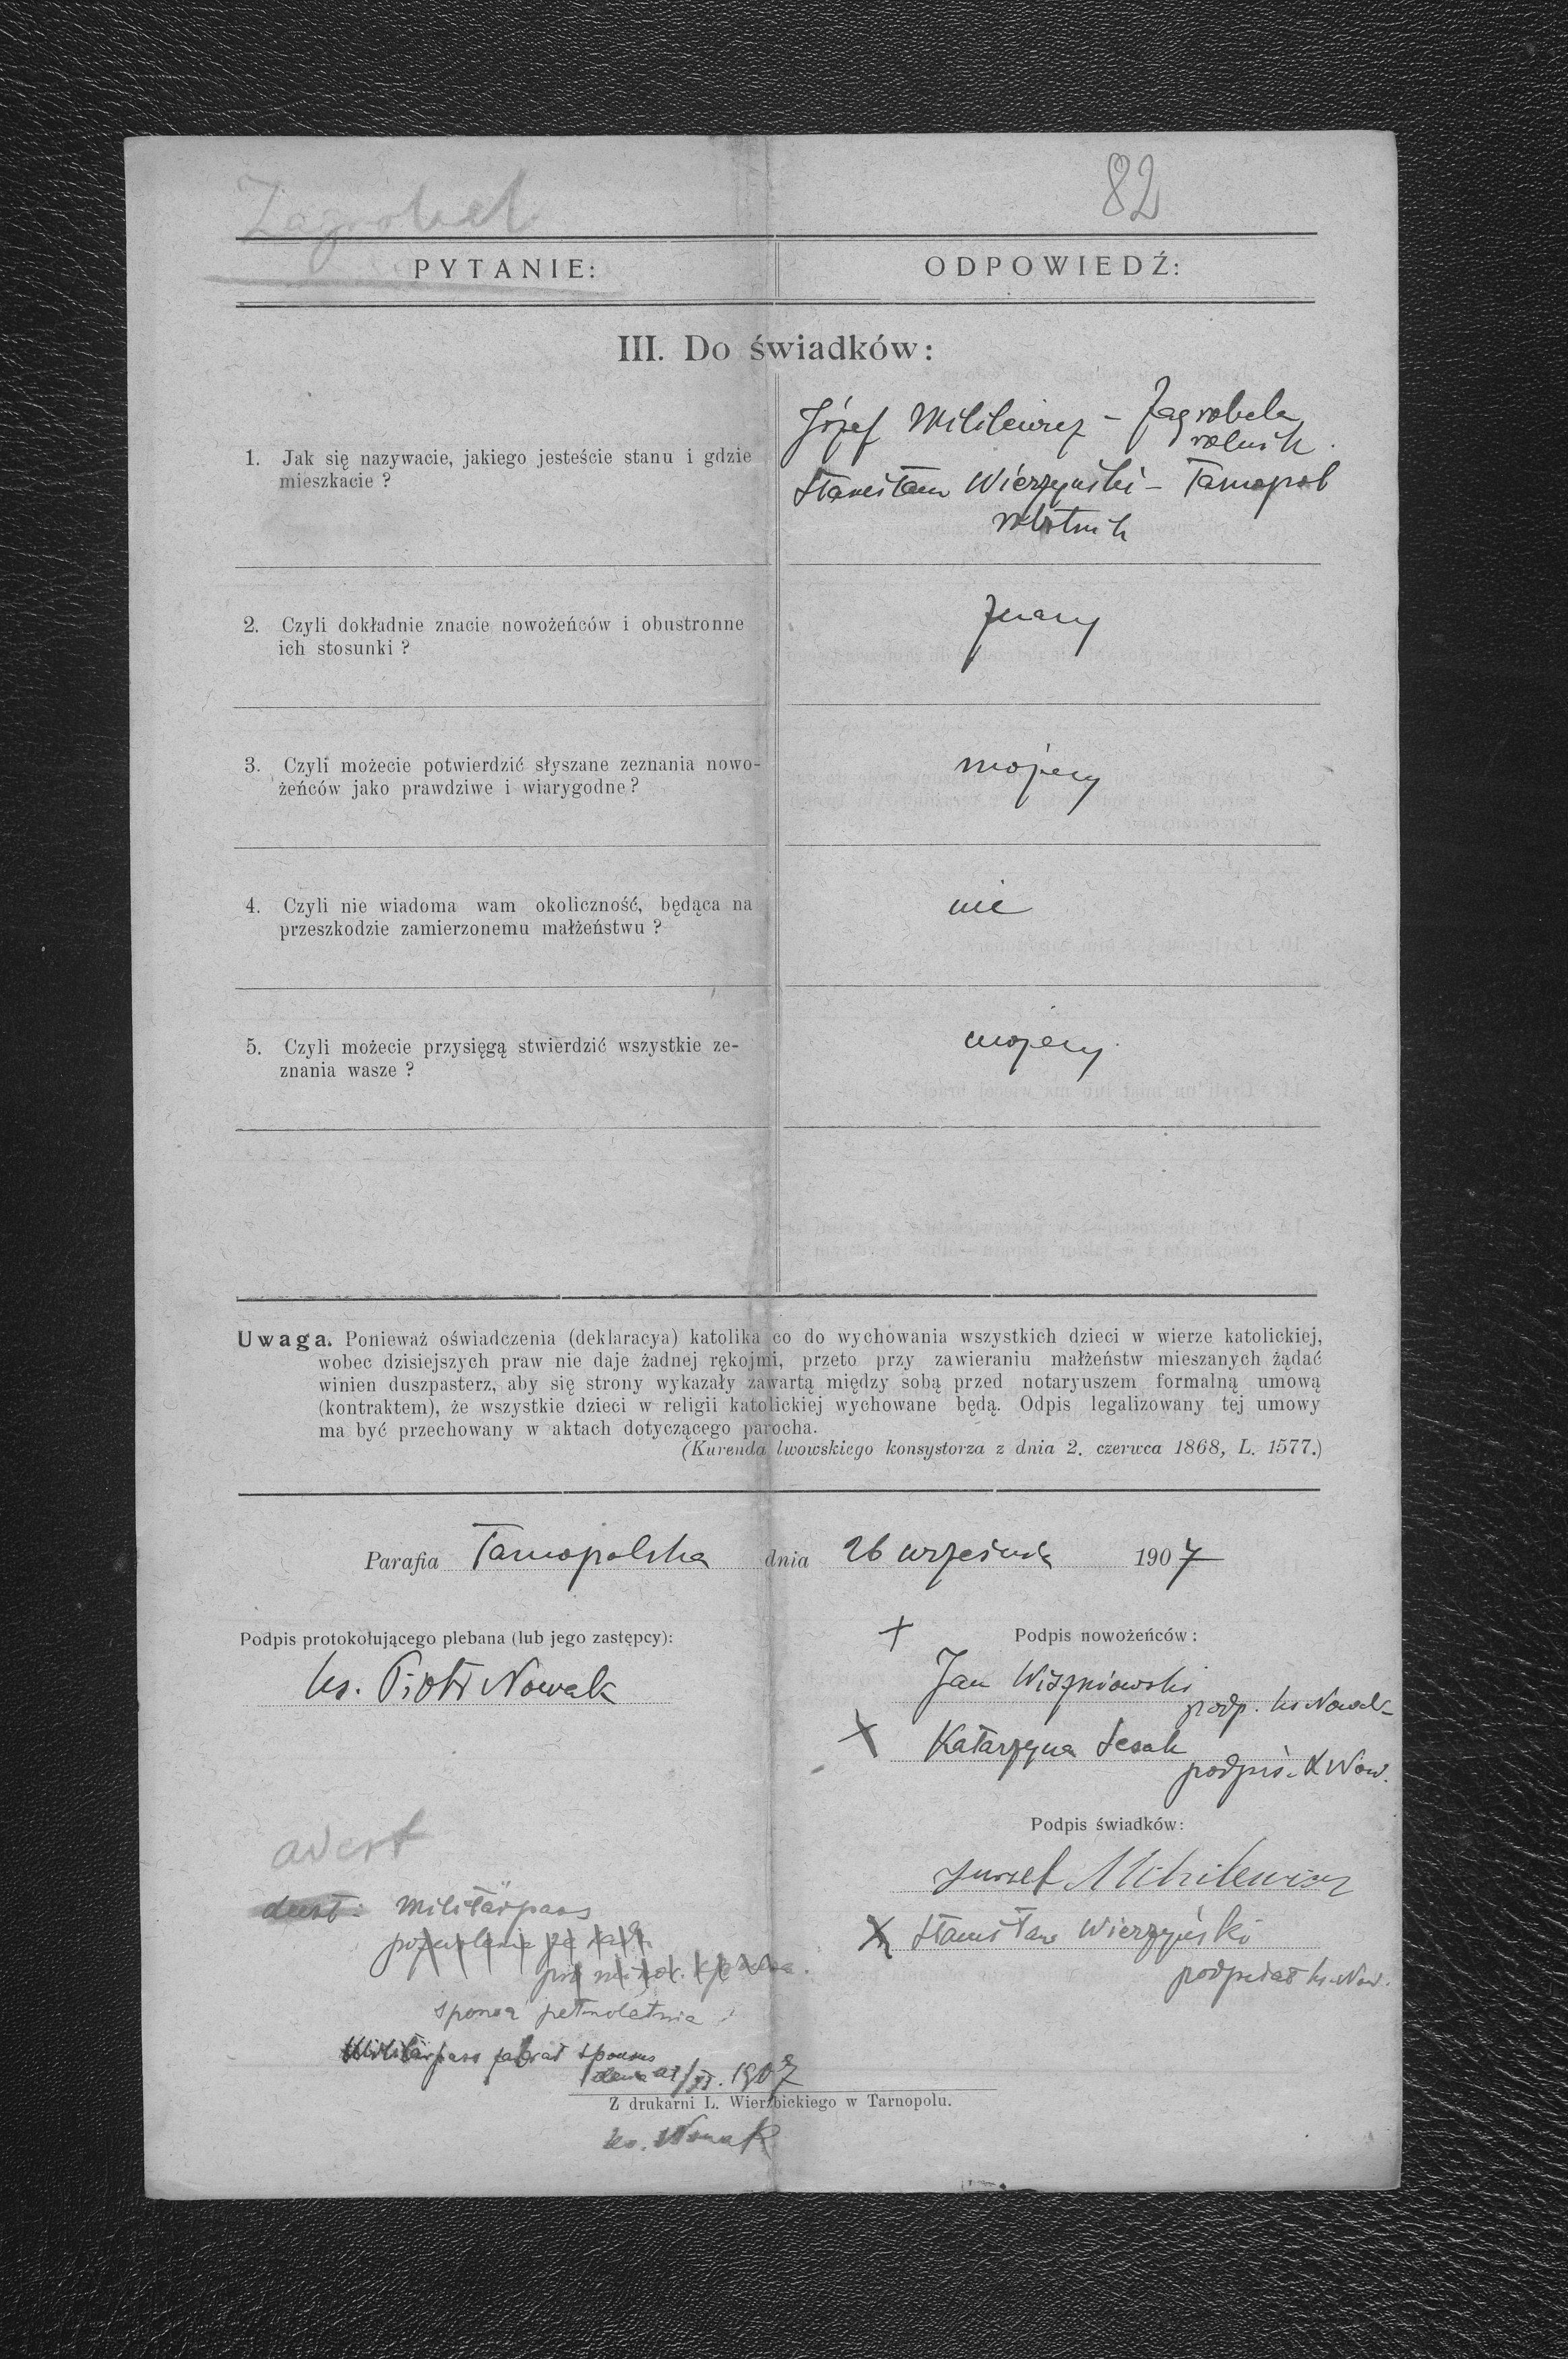 Zagrobel
82
PYTANIE:
ODPOWIEDŹ:
III. Do świadków:
1. Jak się nazywacie, jakiego jesteście stanu i gdzie
mieszkacie ?
Józef Mililewicz – Zagrobela
rolnik
Stanisław Wierzyński – Tarnopol
robotnik
2. Czyli dokładnie znacie nowożeńców i obustronne
ich stosunki ?
znamy
3. Czyli możecie potwierdzić słyszane zeznania nowo-
żeńców jako prawdziwe i wiarygodne ?
możemy
4. Czyli nie wiadoma wam okoliczność, będąca na
przeszkodzie zamierzonemu małżeństwu ?
nie
5. Czyli możecie przysięgą stwierdzić wszystkie ze-
znania wasze ?
możemy
Uwaga. Ponieważ oświadczenia (deklaracya) katolika co do wychowania wszystkich dzieci w wierze katolickiej,
wobec dzisiejszych praw nie daje żadnej rękojmi, przeto przy zawieraniu małżeństw mieszanych żądać
winien duszpasterz, aby się strony wykazały zawartą między sobą przed notaryuszem formalną umową
(kontraktem), że wszystkie dzieci w religii katolickiej wychowane będą. Odpis legalizowany tej umowy
ma być przechowany w aktach dotyczącego parocha.
(Kurenda lwowskiego konsystorza z dnia 2. czerwca 1868, L. 1577.)
Parafia Tarnopolska dnia 26 września 1907
Podpis protokołującego plebana (lub jego zastępcy):
ks. Piotr Nowak
+ Podpis nowożeńców :
Jan Wiszniowski
podp. ks Nowak
X Katarzyna
podpis. X Now.
Podpis świadków:
X Stanisław Wierzyński
podpisał ks. Now.
avert
Militärpass
sponsa pełnoletnia
Militärpass zabrał sponsus
1907
Z drukarni L. Wierzbickiego w Tarnopolu.
ks. Nowak